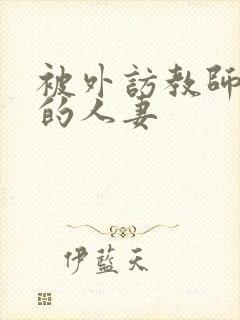 被外訪教師
的人妻
伊藍天